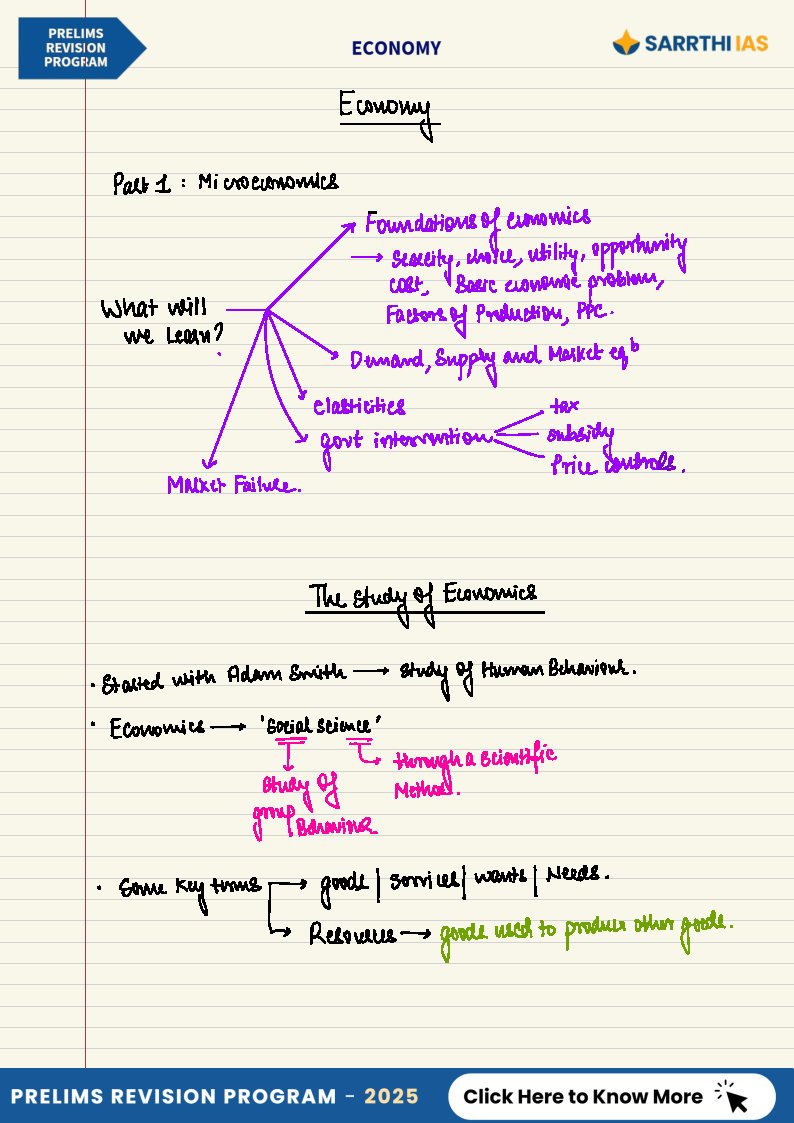 PRELIMS
REVISION
PROGRAM
ECONOMY
SARRTHI IAS
Economy
Part 1 : Microeconomics
Foundations of economics
→ Scarcity, choice, utility, opportunity
cost, Basic economic problem,
Factors of Production, PPC.
What will
we Learn?
Demand, Supply and Market eqb
elasticities
govt intervention
tax
subsidy
Price controls.
Market Failure.
The Study of Economics
· Started with Adam Smith → Study of Human Behaviour.
· Economics → 'Social Science'
through a scientific
Method.
Study of
group Behaviour
· Some Key terms → goods | services | wants | Needs.
→ Resources → goods used to produce other goods.
PRELIMS REVISION PROGRAM - 2025
Click Here to Know More